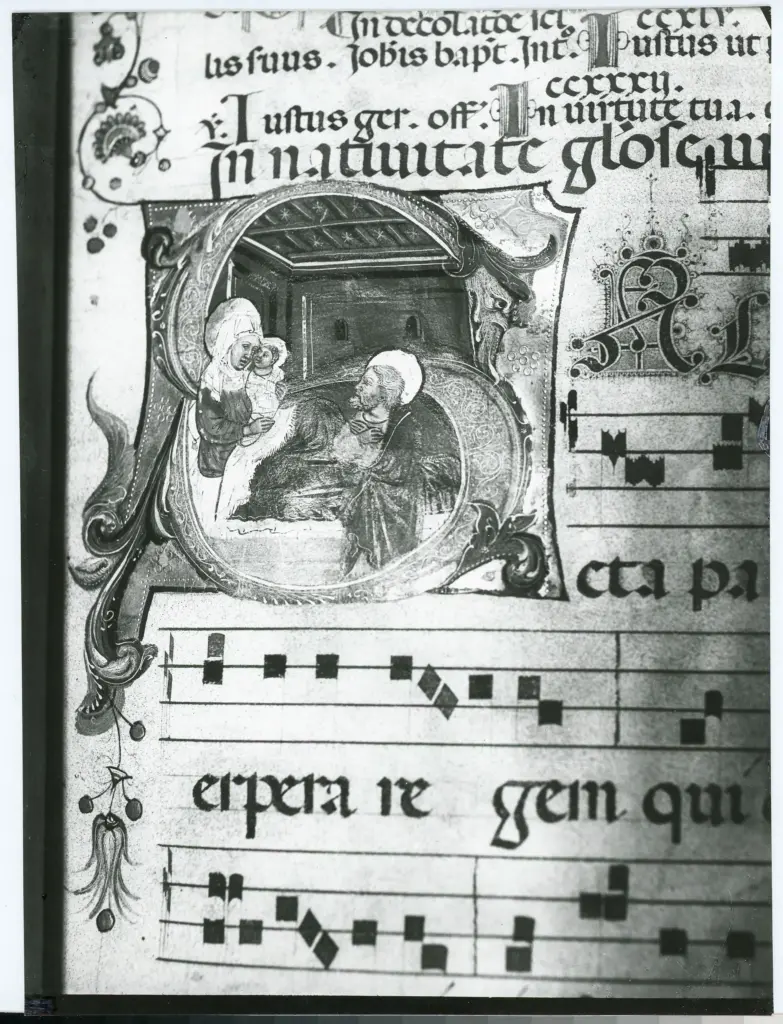 In decolatõe sci ccxlv.
lis suus. Johis bapt. Int. Iustus ut
ccxxxij.
℣. Iustus ger. off. In uirtute tua.
In natiuitate gl'ose uir
SAL
cta pa
erpera re gem qui